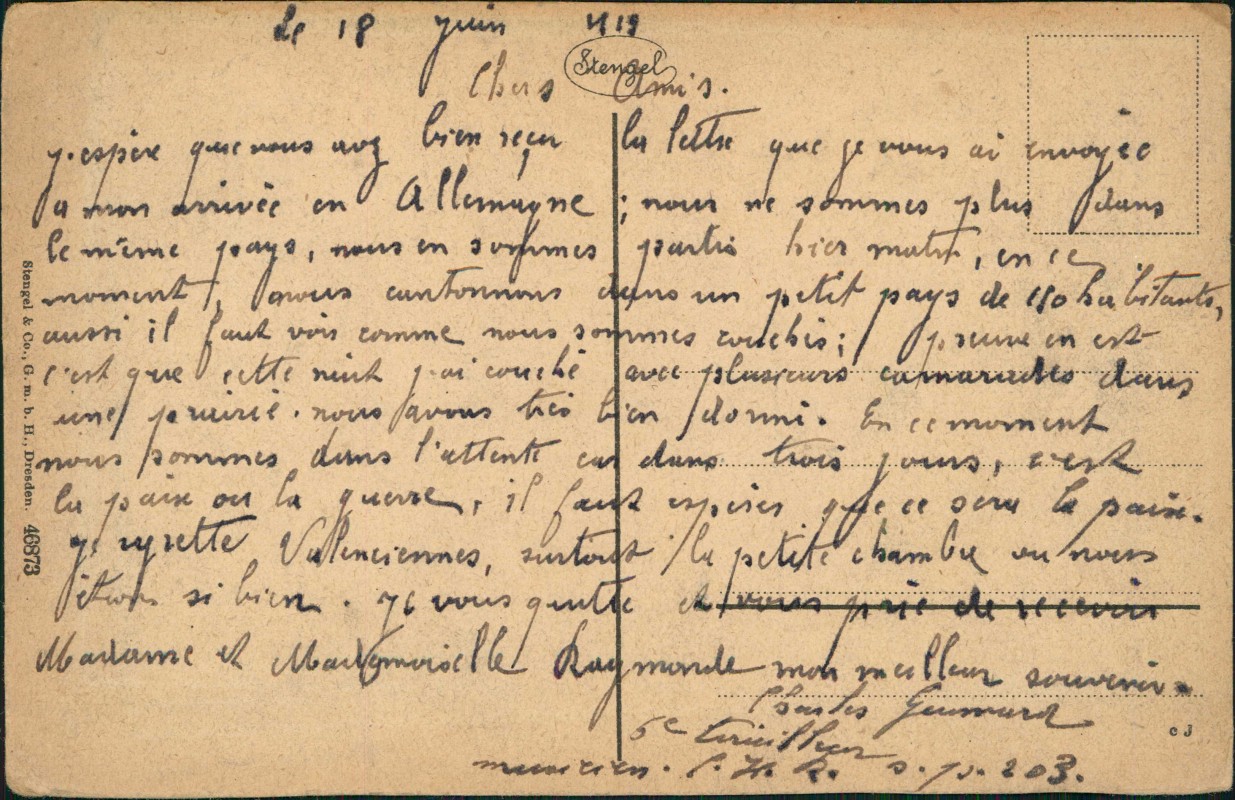 Le 18 juin 1919
Stengel
Chers Amis.
j'espère que vous avez bien reçu la lettre que je vous ai envoyée
a mon arrivée en Allemagne ; nous ne sommes plus dans
le même pays, nous en sommes partis hier matin, en ce
moment, nous cantonnons dans un petit pays de 150 habitants,
aussi il faut voir comme nous sommes couchés ; preuve en est
c'est que cette nuit j'ai couché avec plusieurs camarades dans
une prairie. nous avons très bien dormi. En ce moment
nous sommes dans l'attente car dans trois jours, c'est
la paix ou la guerre, il faut espérer que ce sera la paix.
je regrette Valenciennes, surtout la petite chambre ou nous
étions si bien. Je vous quitte et vous prie de recevoir
Madame et Mademoiselle Raymonde mon meilleur souvenir.
Charles
5e tirailleur
musicien. C. H. R. s.p. 203.
Stengel & Co., G. m. b. H., Dresden. 46873
c J